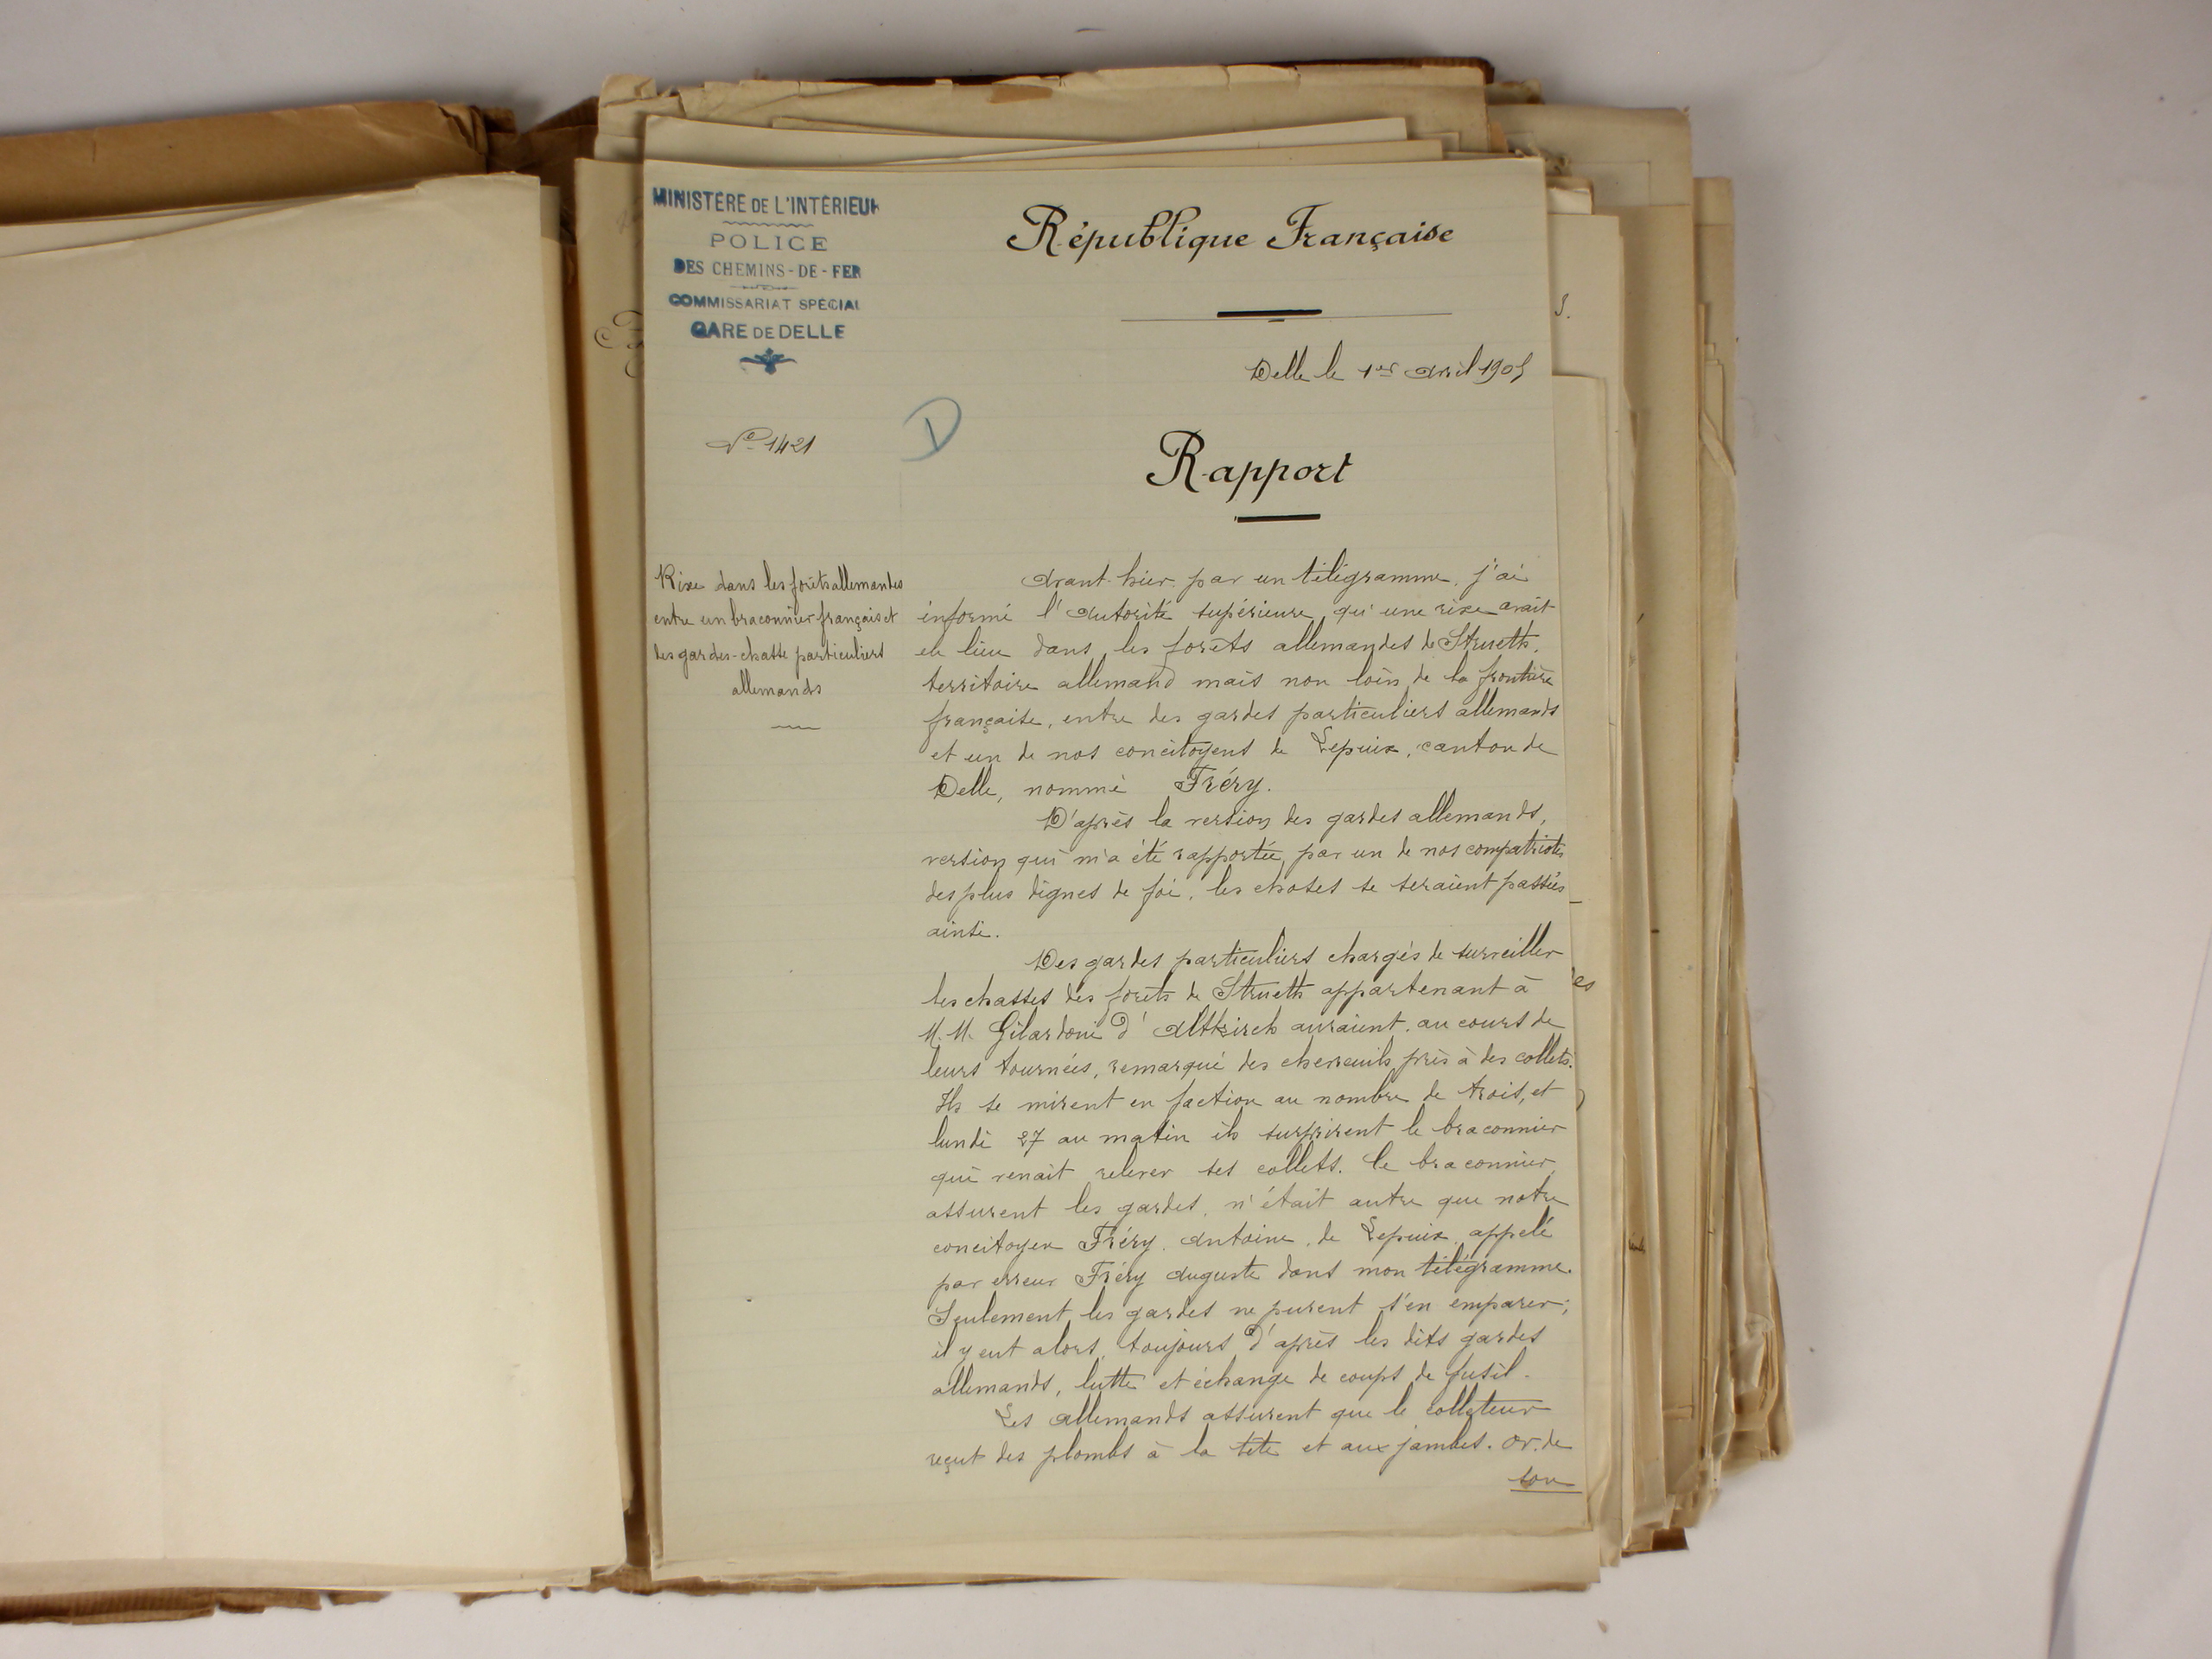 MINISTÈRE DE L'INTÉRIEUR
POLICE
DES CHEMINS-DE-FER
COMMISSARIAT SPÉCIAL
GARE DE DELLE
République Française
Delle le 1er Avril 1905
D
No 1421
Rapport
Rixe dans les forêts allemandes
entre un braconnier français et
des gardes-chasse particuliers
allemands
Avant-hier, par un télégramme, j'ai
informé l'Autorité supérieure qu'une rixe avait
eu lieu dans les forêts allemandes de Strueth,
territoire allemand mais non loin de la frontière
française, entre des gardes particuliers allemands
et un de nos concitoyens de Lepuix, canton de
Delle, nommé Fréry.
D'après la version des gardes allemands,
version qui m'a été rapportée par un de nos compatriotes
des plus dignes de foi, les choses se seraient passées
ainsi.
Des gardes particuliers chargés de surveiller
les chasses des forêts de Strueth appartenant à
M.M. Gilardoni d'Altkirch auraient, au cours de
leurs tournées, remarqué des chevreuils pris à des collets.
Ils se mirent en faction au nombre de trois, et
lundi 27 au matin ils surprirent le braconnier
qui venait relever ses collets. Ce braconnier,
assurent les gardes, n'était autre que notre
concitoyen Fréry, Antoine, de Lepuix, appelé
par erreur Fréry Auguste dans mon télégramme.
Seulement les gardes ne purent s'en emparer;
il y eut alors, toujours d'après les dits gardes
allemands, lutte et échange de coups de fusil.
Les Allemands assurent que le colleteur
reçut des plombs à la tête et aux jambes. Or, de
son
es